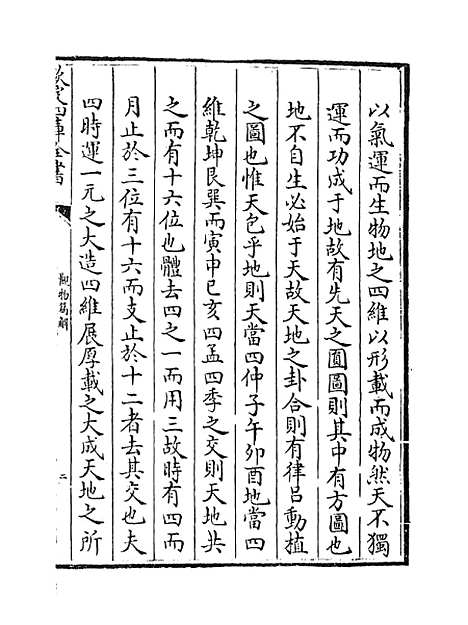 以氣運而生物地之四維以形載而成物然天不獨
運而功成于地故有先天之圓圖則其中有方圖也
地不自生必始于天故天地之卦合則有律吕動植
之圖也惟天包乎地則天當四仲子午卯酉地當四
維乾坤艮巽而寅申已亥四孟四季之交則天地共
之而有十六位也體去四之一而用三故時有四而
月止於三位有十六而支止於十二者去其交也夫
四時運一元之大造四維展厚載之大成天地之所
欽定四庫全書
觀物篇解
二